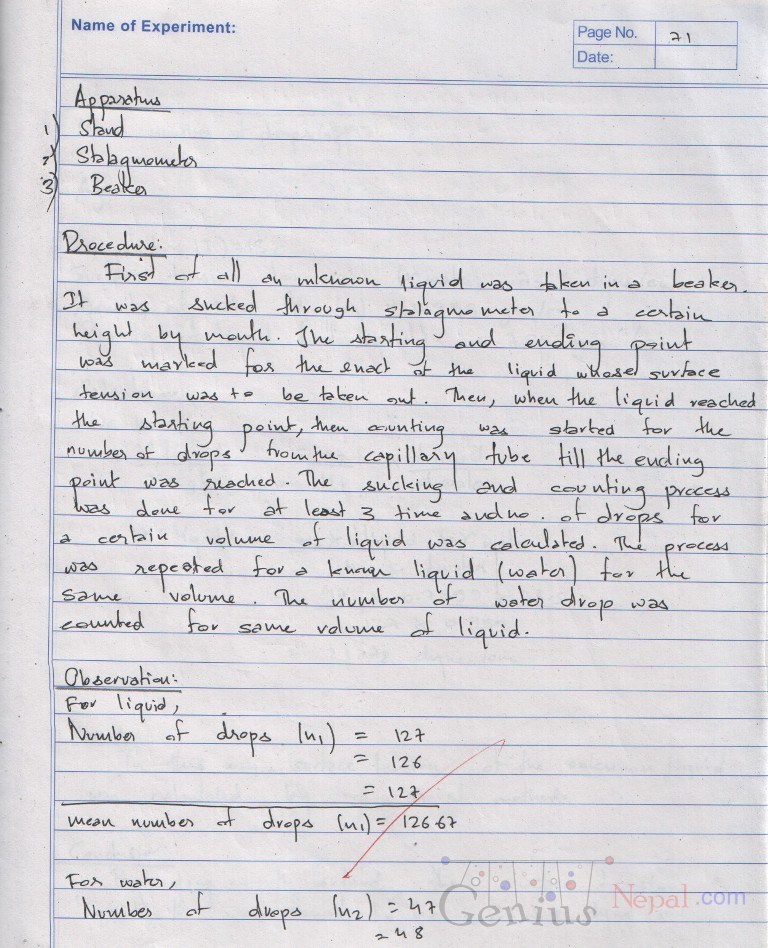 Name of Experiment:
Page No. 71
Date:
Apparatus
1) Stand
2) Stalagmometer
3) Beaker
Procedure:
First of all an unknown liquid was taken in a beaker.
It was sucked through stalagmometer to a certain
height by mouth. The starting and ending point
was marked for the enact of the liquid whose surface
tension was to be taken out. Then, when the liquid reached
the starting point, then counting was started for the
number of drops from the capillary tube till the ending
point was reached. The sucking and counting process
was done for at least 3 time and no. of drops for
a certain volume of liquid was calculated. The process
was repeated for a known liquid (water) for the
same volume. The number of water drop was
counted for same volume of liquid.
Observation:
For liquid,
Number of drops (n1) = 127
= 126
= 127
mean number of drops (n1) = 126.67
For water,
Number of drops (n2) = 47
= 48
Genius Nepal.com